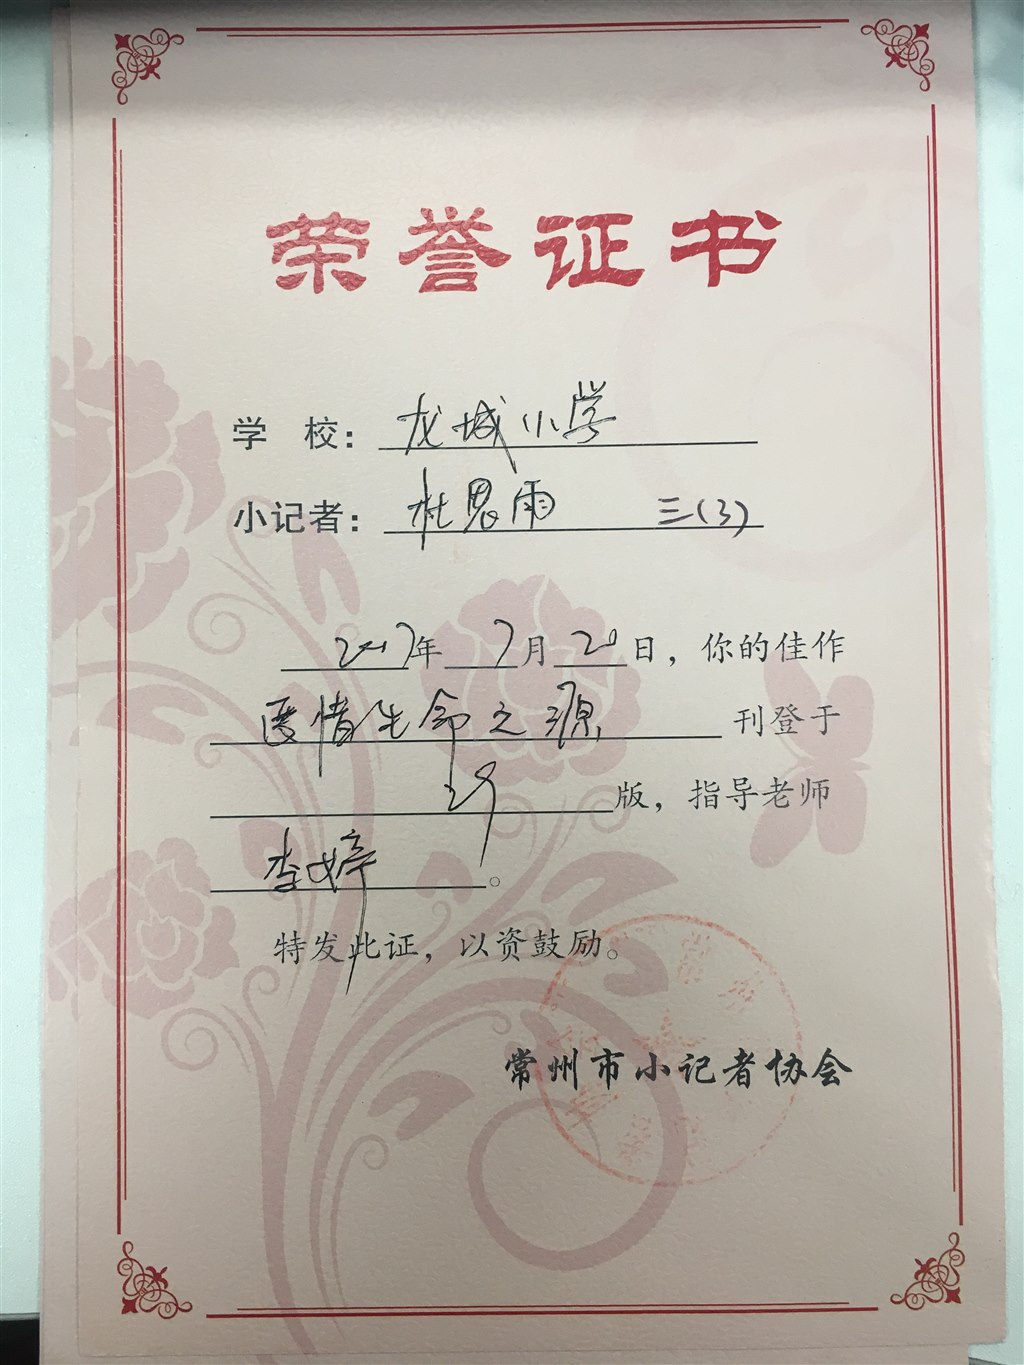 荣誉证书
学 校：龙城小学
小记者：杜思雨 三(3)
2017年7月20日，你的佳作
爱惜生命之源 刊登于
29版，指导老师
李婷。
特发此证，以资鼓励。
常州市小记者协会